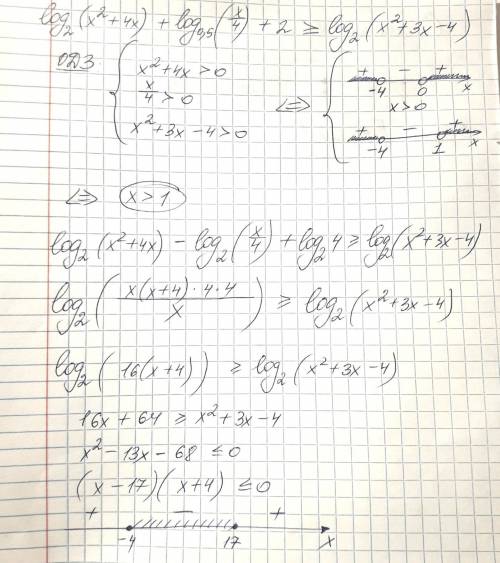 log₂(x²+4x) + log₀,₅(x/4) + 2 ≥ log₂(x²+3x−4)
ОДЗ { x²+4x>0 ; x/4>0 ; x²+3x−4>0 <=> { + −4 − 0 + x ; x>0 ; + −4 − 1 + x
<=> x>1
log₂(x²+4x) − log₂(x/4) + log₂4 ≥ log₂(x²+3x−4)
log₂(x(x+4)·4·4/x) ≥ log₂(x²+3x−4)
log₂(16(x+4)) ≥ log₂(x²+3x−4)
16x+64 ≥ x²+3x−4
x²−13x−68 ≤0
(x−17)(x+4) ≤0
+ − +
−4 17 x